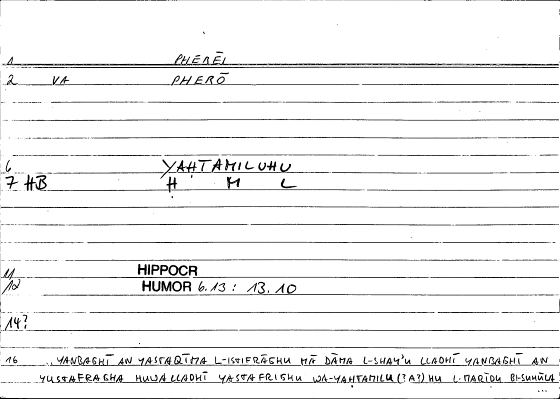 1 PHEREĪ
2 VA PHERŌ
6 YAḤTAMILUHU
7 HB Ḥ M L
11 HIPPOCR
12 HUMOR 6.13 : 13.10
14?
16 ..YANBAGHĪ AN YASTAQĪMA L-ISTIFRĀGHU MĀ DĀMA L-SHAY'U LLADHĪ YANBAGHĪ AN
YUSTAFRAGHA HUWA LLADHĪ YASTAFRIGHU WA-YAḤTAMILU(?A?)HU L-MARĪḌU BI-SUHŪLA
...